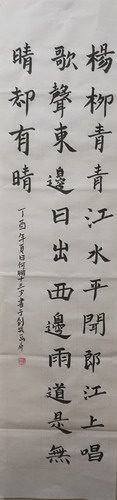 楊柳青青江水平聞郎江上唱
歌聲東邊日出西邊雨道是無
晴却有晴
丁酉年夏日何
十三
書于